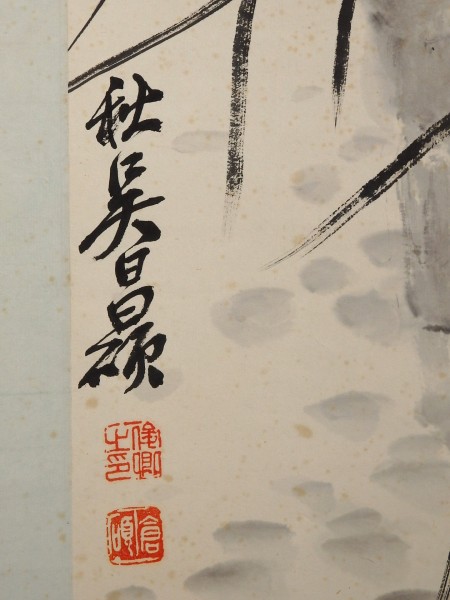 秋吳昌碩
俊卿之印
倉碩